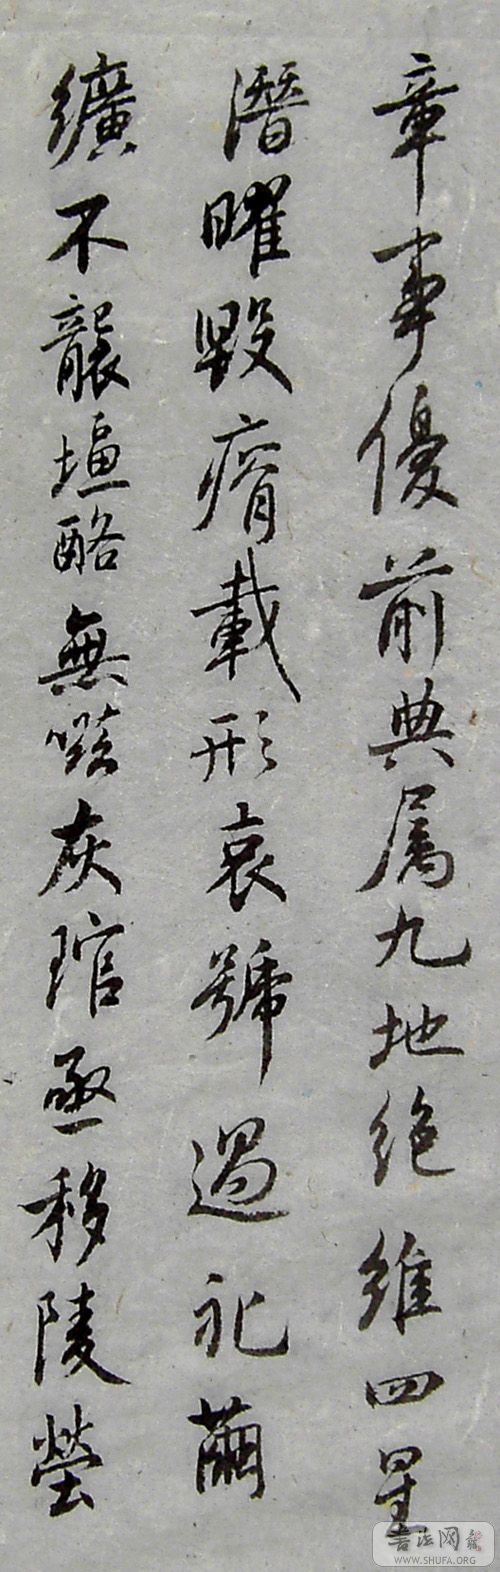 章事優前典属九地绝維四星
潛曜毀瘠載形哀號過礼繭
纊不襲塩酪無嗞灰琯亟移陵塋
書法网
WWW.SHUFA.ORG